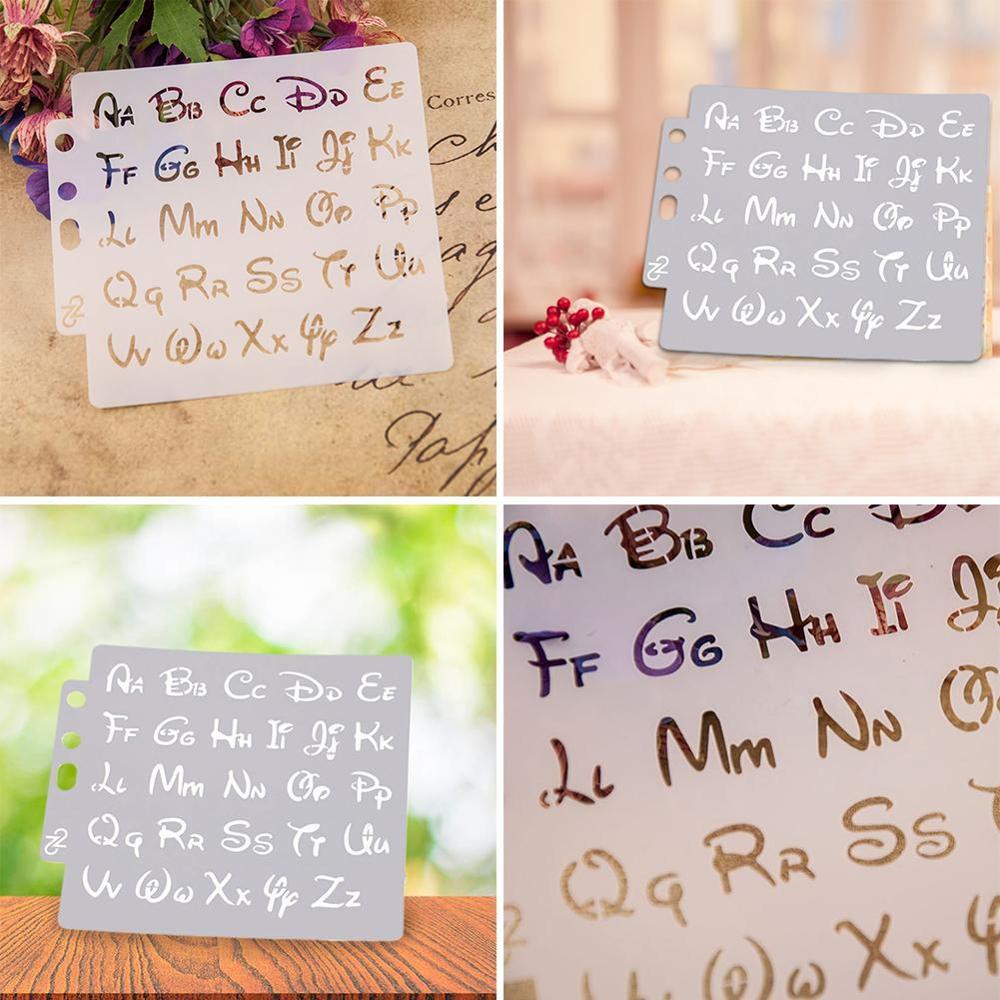 Aa Bb Cc Dd Ee
Ff Gg Hh Ii Jj Kk
Ll Mm Nn Oo Pp
Qq Rr Ss Tt Uu
Vv Ww Xx Yy Zz
Corres
Aa Bb Cc Dd Ee
Ff Gg Hh Ii Jj Kk
Ll Mm Nn Oo Pp
Qq Rr Ss Tt Uu
Vv Ww Xx Yy Zz
Aa Bb Cc Dd Ee
Ff Gg Hh Ii Jj Kk
Ll Mm Nn Oo Pp
Qq Rr Ss Tt Uu
Vv Ww Xx Yy Zz
Aa Bb Cc D
Ff Gg Hh Ii J
Ll Mm Nn O
Qq Rr Ss
Ww Xx